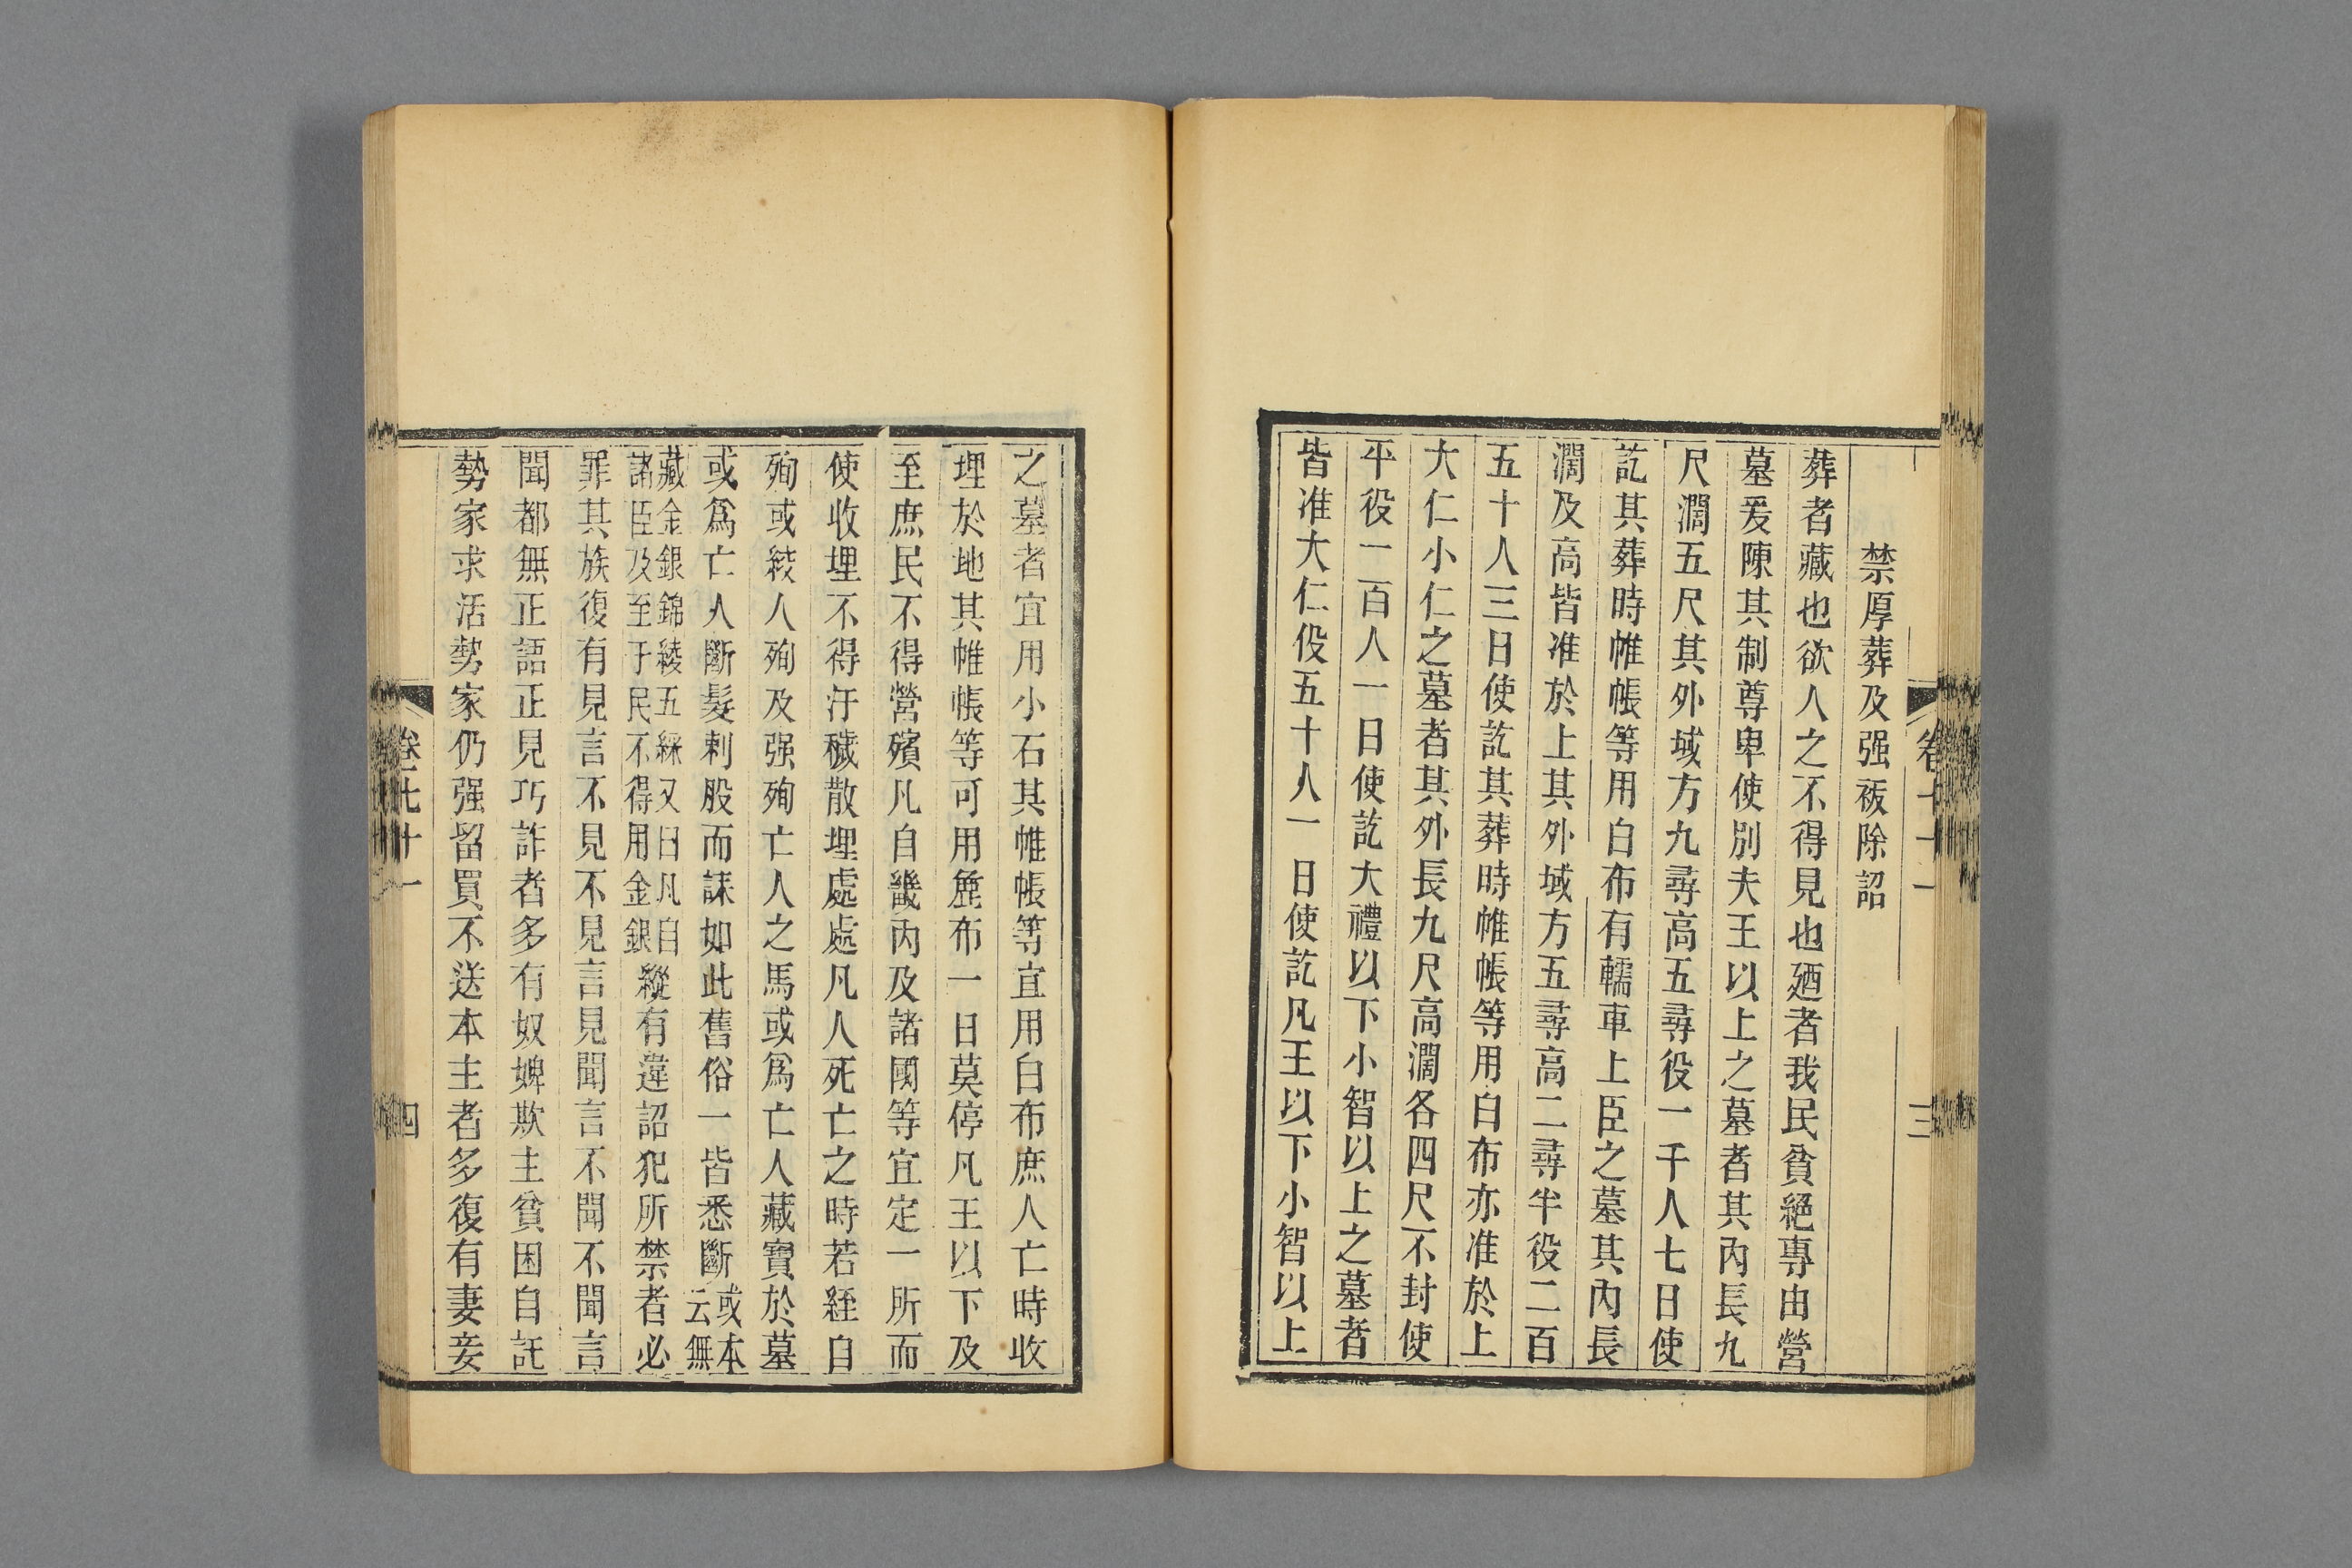 禁厚葬及强祓除詔
葬者藏也欲人之不得見也廼者我民貧絕專由營
墓爰陳其制尊卑使別夫王以上之墓者其內長九
尺濶五尺其外域方九尋高五尋役一千人七日使
訖其葬時帷帳等用白布有轜車上臣之墓其內長
濶及高皆准於上其外域方五尋高二尋半役二百
五十人三日使訖其葬時帷帳等用白布亦准於上
大仁小仁之墓者其外長九尺高濶各四尺不封使
平役一百人一日使訖大禮以下小智以上之墓者
皆准大仁役五十人一日使訖凡王以下小智以上
三
之墓者宜用小石其帷帳等宜用白布庶人亡時收
埋於地其帷帳等可用麁布一日莫停凡王以下及
至庶民不得營殯凡自畿內及諸國等宜定一所而
使收埋不得汙穢散埋處處凡人死亡之時若經自
殉或絞人殉及强殉亡人之馬或爲亡人藏寶於墓
或爲亡人斷髮刺股而誄如此舊俗一皆悉斷或本云無
藏金銀錦綾五綵又曰凡自諸臣及至于民不得用金銀縱有違詔犯所禁者必
罪其族復有見言不見不見言見聞言不聞不聞言
聞都無正語正見巧詐者多有奴婢欺主貧困自託
勢家求活勢家仍强留買不送本主者多復有妻妾
卷七十一
四